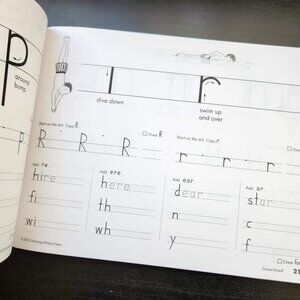 p
around
bump
p
r
dive down
swim up
and over
Start on the dot. Copy R.
Check R
R R R
Start on the dot. Copy r.
r r r
Add ire
hire
fi
wi
Add ere
here
th
wh
Add ear
dear
n
y
Add ar
star
c
f
Check
21